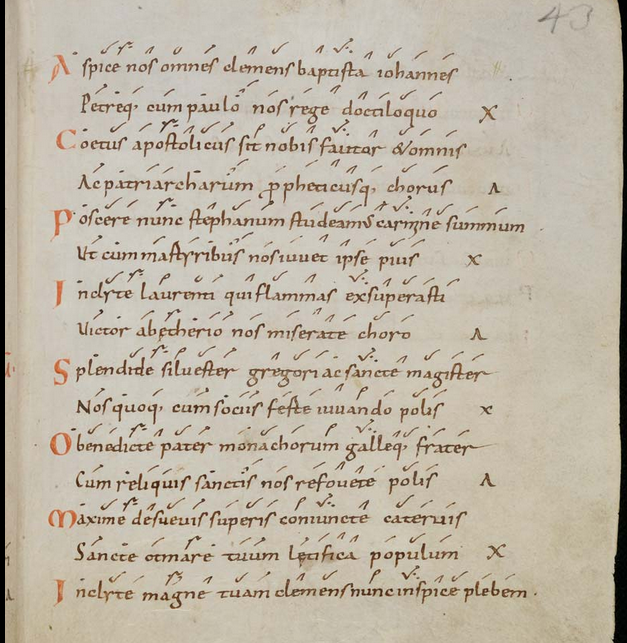 43
Aspice nos omnes clemens baptista iohannes
Petreq; cum paulo nos rege doctiloquo X
Coetus apostolicus sit nobis fautor & omnis
Ac patriarcharum ppheticusq; chorus Λ
Poscere nunc stephanum studeamus carmine summum
Ut cum martyribus nos iuuet ipse pius X
Inclyte laurenti qui flammas exsuperasti
Uictor ab etherio nos miserate choro Λ
Splendide siluester gregori ac sancte magister
Nos quoq; cum sociis feste iuuando polis x
O benedicte pater monachorum galleq; frater
Cum reliquis sanctis nos refouete polis Λ
Maxime de sueuis superis coniuncte cateruis
Sancte otmare tuum lętifica populum X
Inclyte magne tuam clemens nunc inspice plebem .